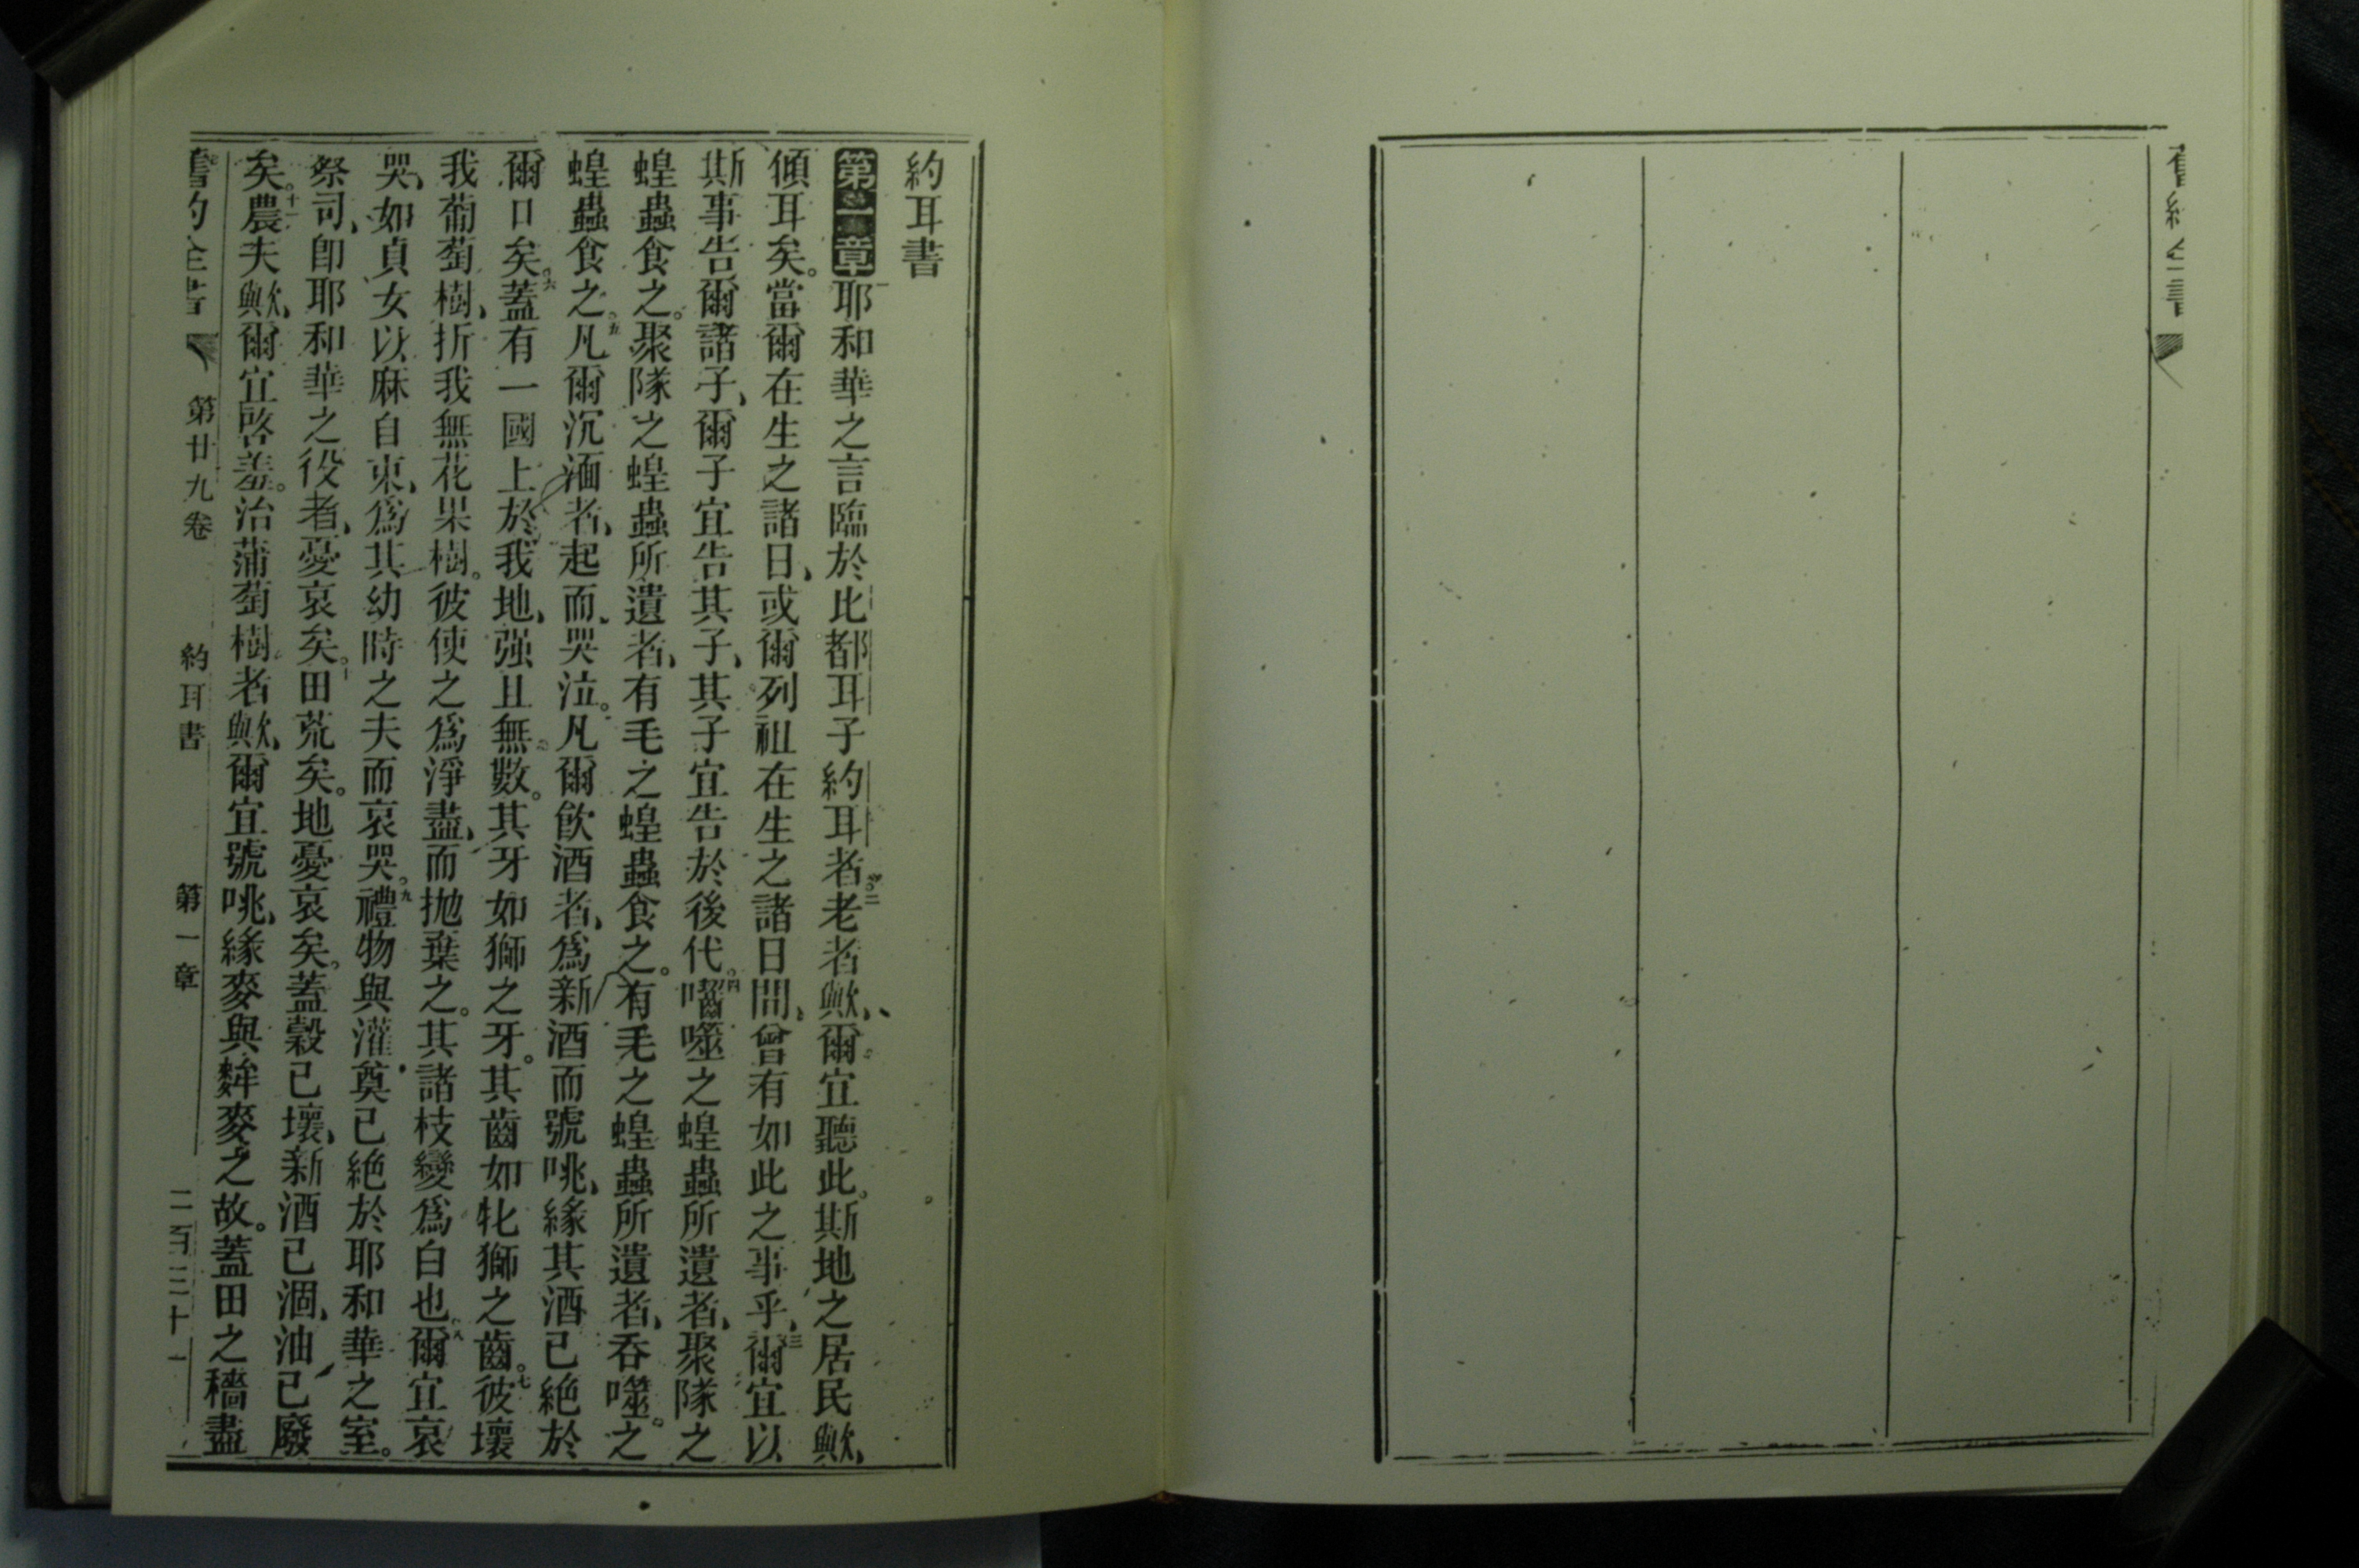 舊約全書
約耳書
第一章 一耶和華之言臨於比都耳子約耳者。二老者歟、爾宜聽此。斯地之居民歟、
傾耳矣。當爾在生之諸日、或爾列祖在生之諸日間、曾有如此之事乎、三爾宜以
斯事告爾諸子、爾子宜告其子、其子宜告於後代。四嚙噬之蝗蟲所遺者、聚隊之
蝗蟲食之。聚隊之蝗蟲所遺者、有毛之蝗蟲食之。有毛之蝗蟲所遺者、吞噬之
蝗蟲食之。五凡爾沉湎者、起而哭泣。凡爾飲酒者、爲新酒而號咷、緣其酒已絕於
爾口矣。六蓋有一國上於我地、强且無數。其牙如獅之牙。其齒如牝獅之齒。七彼壞
我葡萄樹、折我無花果樹。彼使之爲淨盡、而拋棄之。其諸枝變爲白也。八爾宜哀
哭、如貞女以麻自束、爲其幼時之夫而哀哭。九禮物與灌奠已絕於耶和華之室。
祭司、卽耶和華之役者、憂哀矣。十田荒矣。地憂哀矣。蓋穀已壞、新酒已涸、油已廢
矣。十一農夫歟、爾宜啓羞。治蒲萄樹者歟、爾宜號咷、緣麥與麰麥之故。蓋田之穡盡
舊約全書 第廿九卷 約耳書 第一章 二百三十一